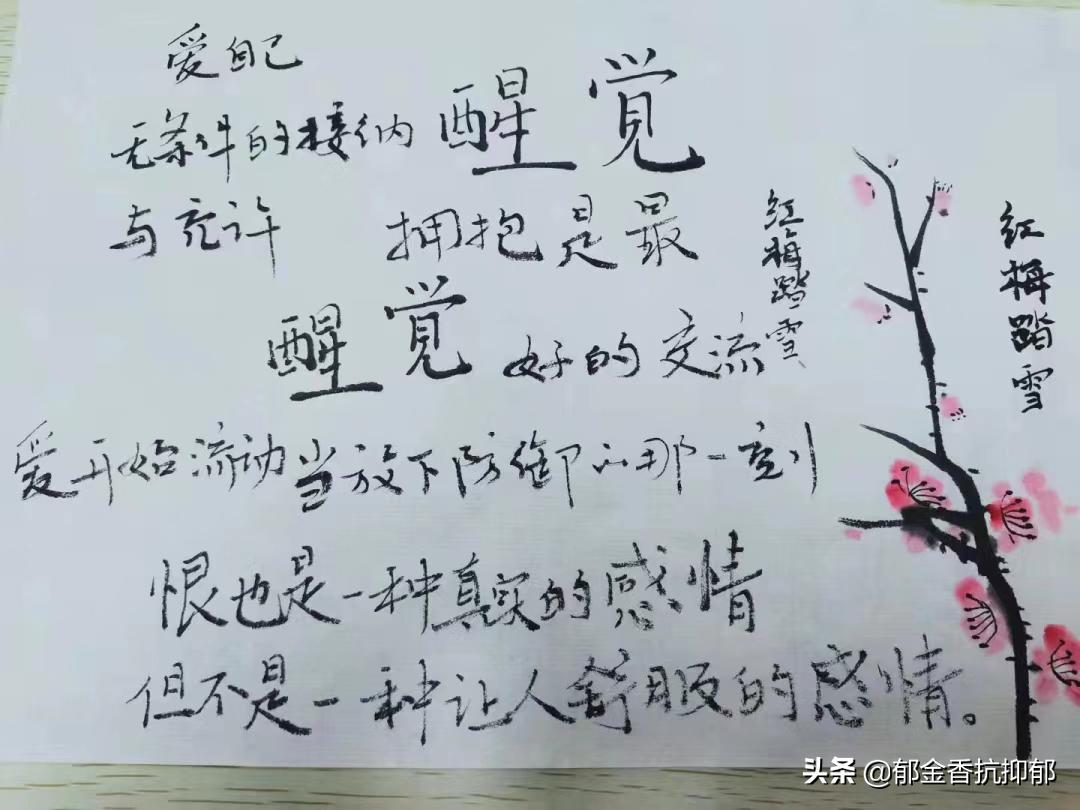 爱自己
无条件的接纳 醒觉
与允许 拥抱是最
醒觉 好的交流
红梅踏雪
红梅踏雪
爱开始流动当放下防御的那一刻
恨也是一种真实的感情
但不是一种让人舒服的感情。
头条 @郁金香抗抑郁